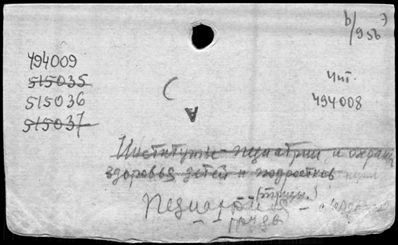 б/956
Э
494009
515035
515036
515037
Чит.
494008
С
А
Институты педиатрии и охраны
здоровья детей и подростков
Педиатрия